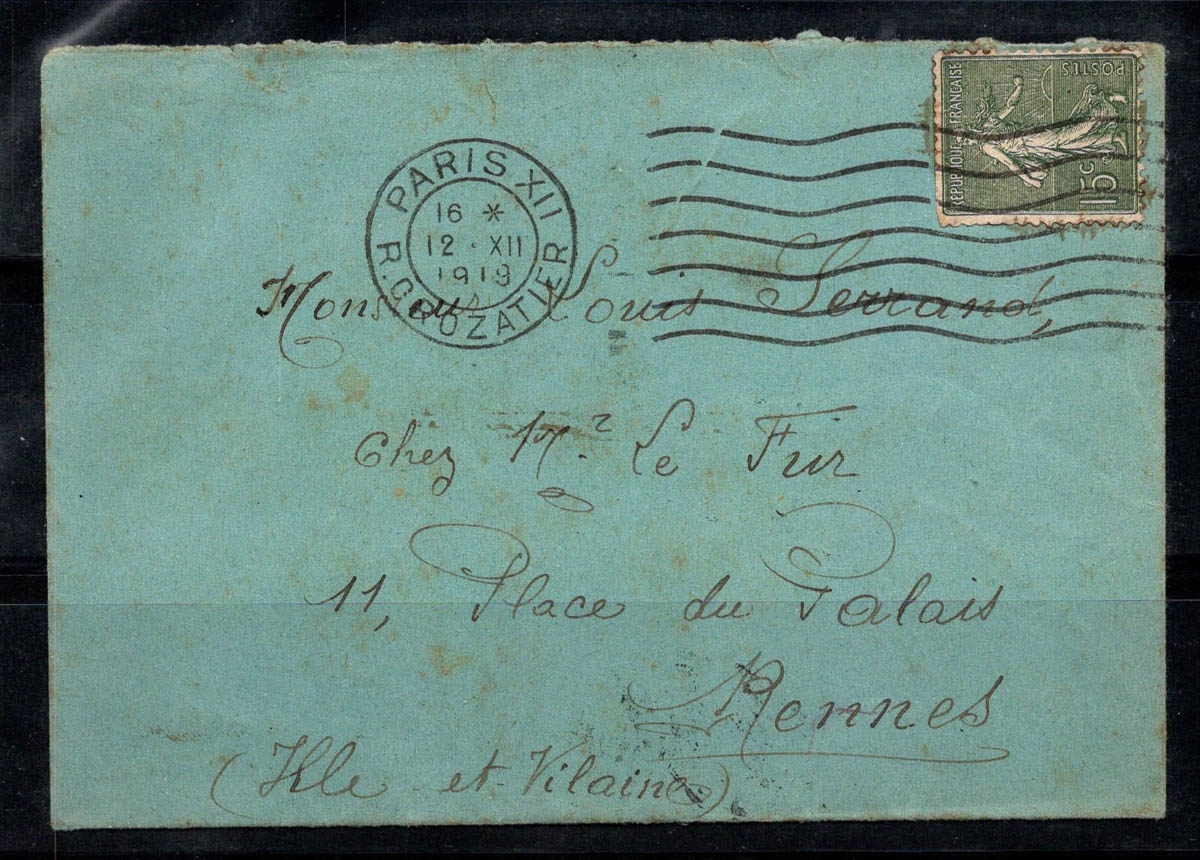 PARIS XII
16 *
12 · XII
1919
R. CROZATIER
REPUBLIQUE FRANÇAISE
POSTES
15c
Monsieur Louis Serrand,
Chez Mr. Le Fur
11, Place du Palais
Rennes
(Ille et-Vilaine)